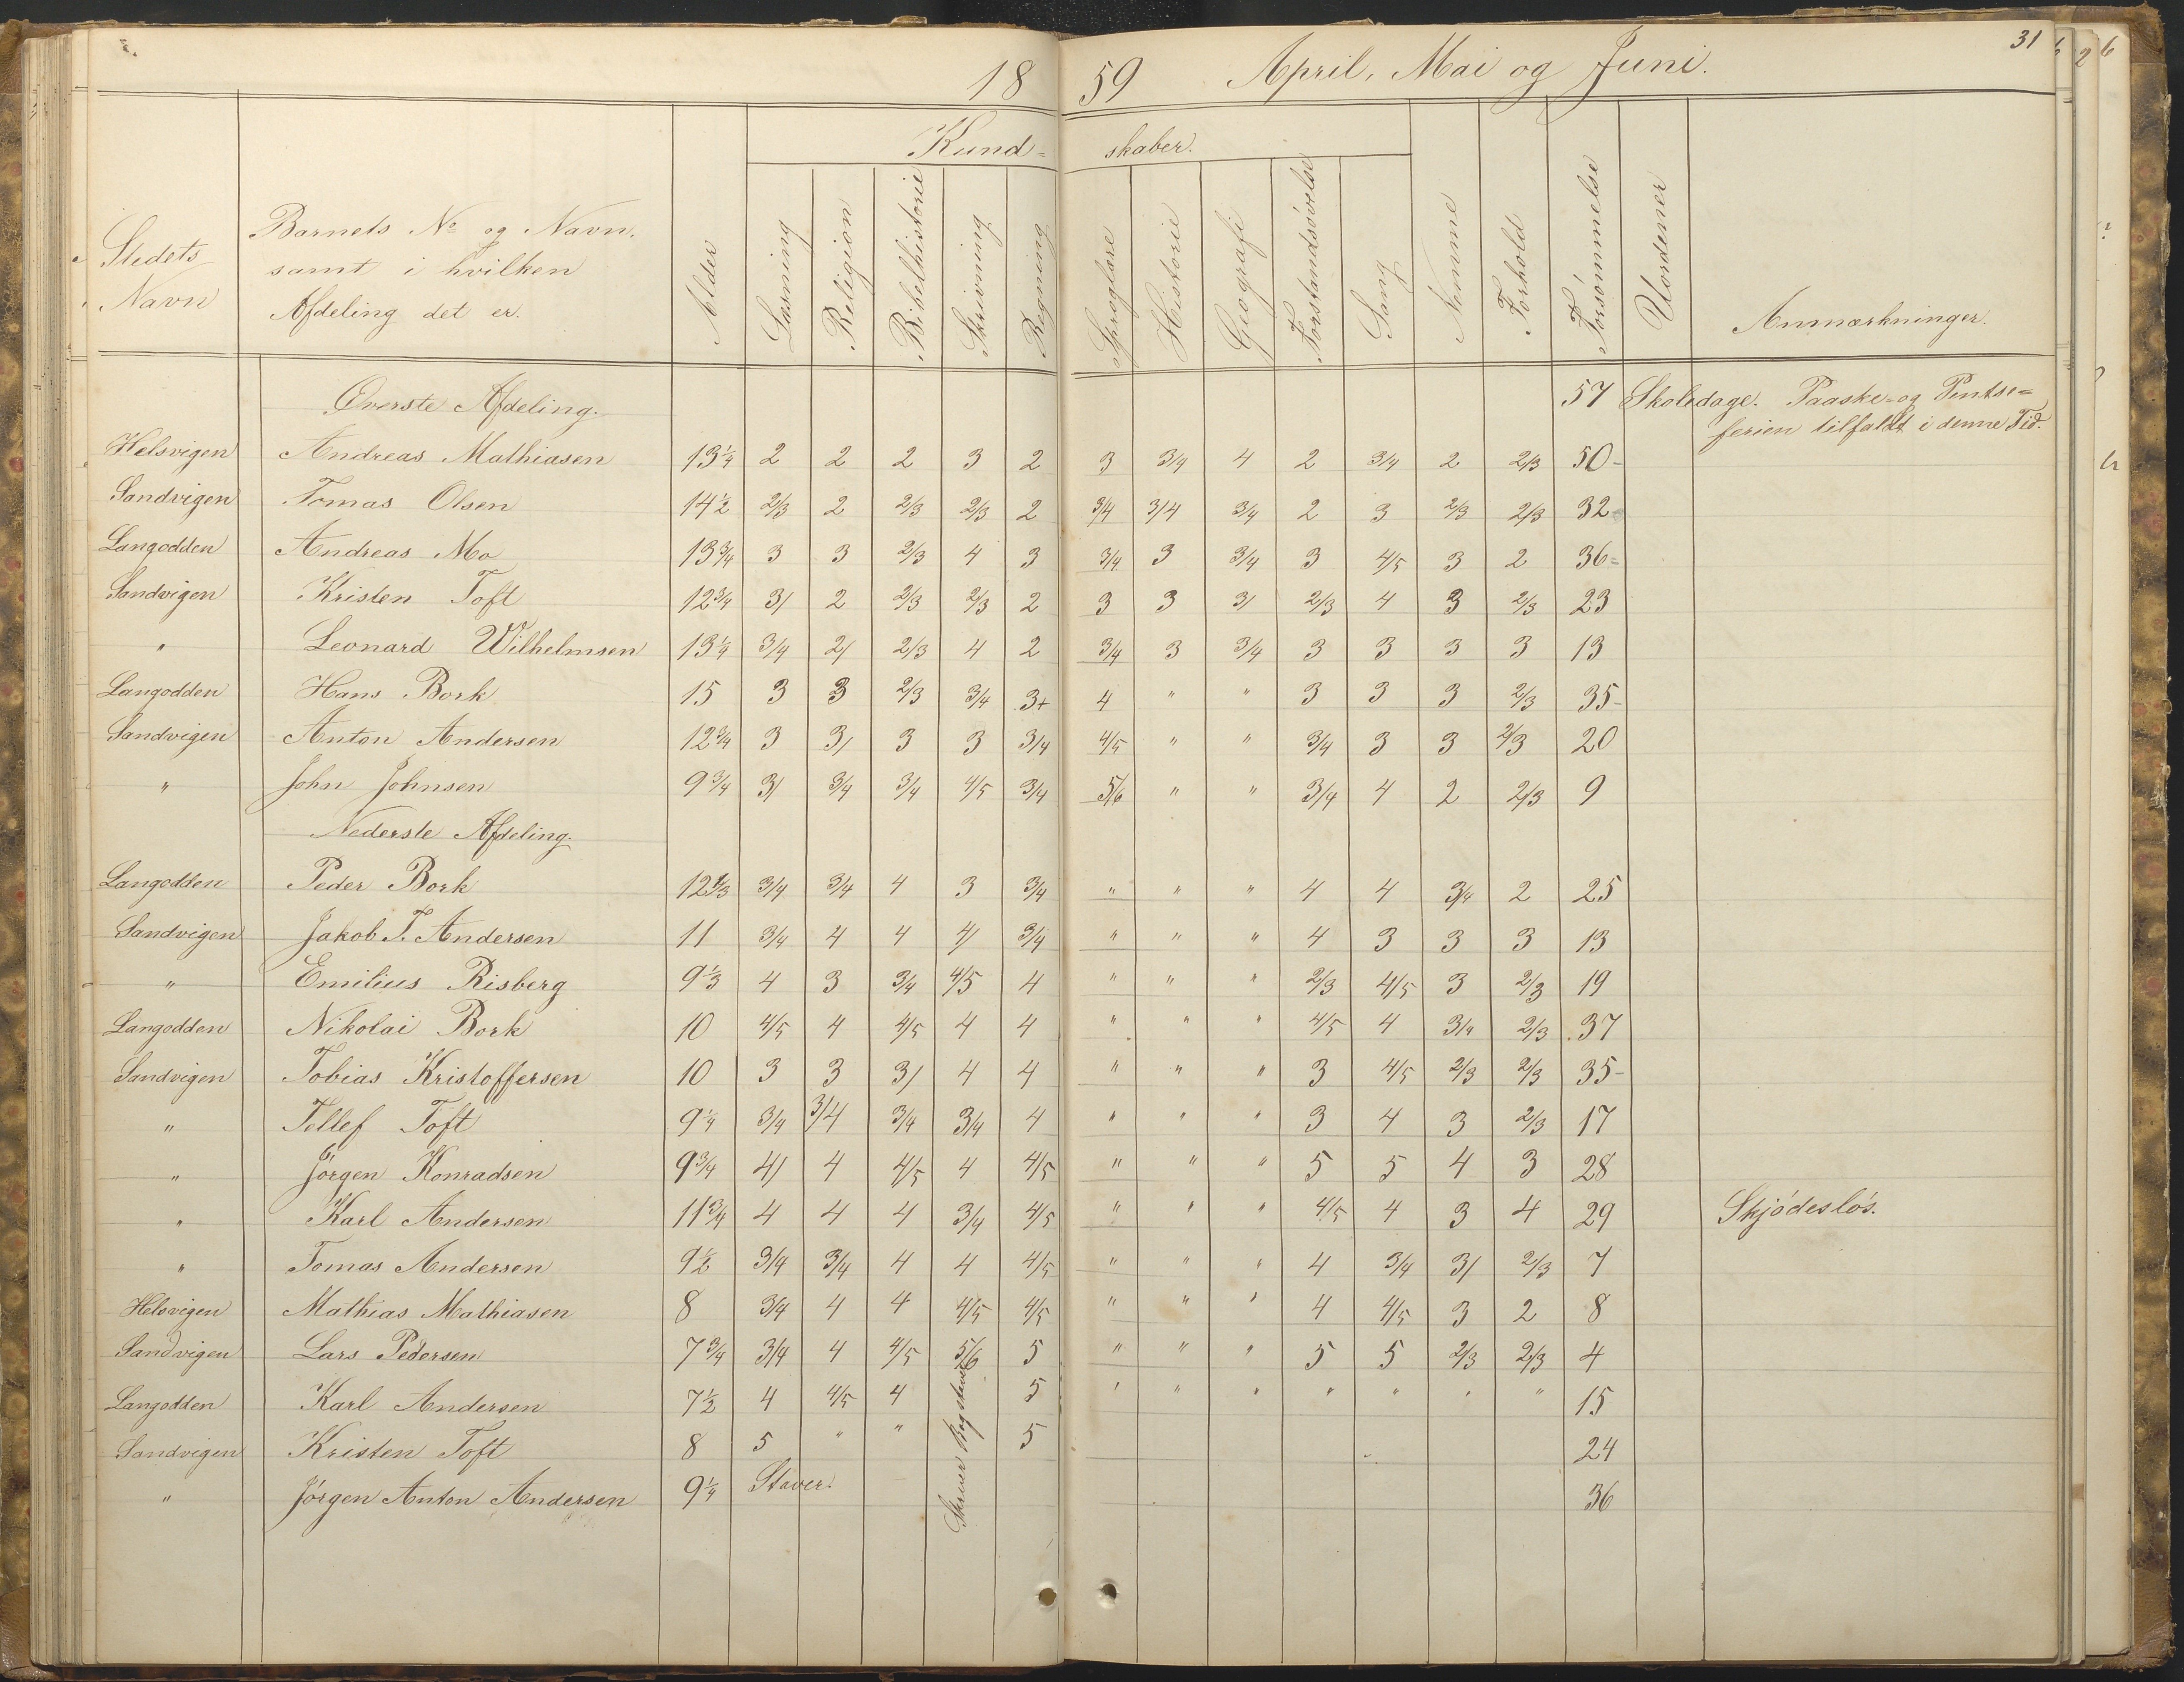 31
1859 April, Mai og Juni.
Stedets Navn
Barnets No og Navn. samt i hvilken Afdeling det er.
Alder
Kundskaber.
Læsning
Religion
Bibelhistorie
Skrivning
Regning
Sproglære
Historie
Geografi
Forstandsøvelse
Sang
Nemme
Forhold
Forsømmelse
Uordener
Anmærkninger.
Øverste Afdeling. 57 Skoledage. Paaske- og Pintse=
ferien tilfaldt i denne Tid.
Helsvigen Andreas Mathiasen 13 1/4 2 2 2 3 2 3 3/4 4 2 3/4 2 2/3 50-
Sandvigen Tomas Olsen 14 1/2 2/3 2 2/3 2/3 2 3/4 3/4 3/4 2 3 2/3 2/3 32-
Langodden Andreas Mo 13 3/4 3 3 2/3 4 3 3/4 3 3/4 3 4/5 3 2 36=
Sandvigen Kristen Toft 12 3/4 3/ 2 2/3 2/3 2 3 3 3/ 2/3 4 3 2/3 23
" Leonard Wilhelmsen 13 1/4 3/4 2/ 2/3 4 2 3/4 3 3/4 3 3 3 3 13
Langodden Hans Bork 15 3 3 2/3 3/4 3+ 4 " " 3 3 3 2/3 35-
Sandvigen Anton Andersen 12 3/4 3 3/ 3 3 3/4 4/5 " " 3/4 3 3 2/3 20
" John Johnsen 9 3/4 3/ 3/4 3/4 4/5 3/4 5/6 " " 3/4 4 2 2/3 9
Nederste Afdeling.
Langodden Peder Bork 12 1/3 3/4 3/4 4 3 3/4 " " " 4 4 3/4 2 25
Sandvigen Jakob T. Andersen 11 3/4 4 4 4/ 3/4 " " " 4 3 3 3 13
" Emilius Risberg 9 1/3 4 3 3/4 4/5 4 " " " 2/3 4/5 3 2/3 19
Langodden Nikolai Bork 10 4/5 4 4/5 4 4 " " " 4/5 4 3/4 2/3 37
Sandvigen Tobias Kristoffersen 10 3 3 3/ 4 4 " " " 3 4/5 2/3 2/3 35-
" Tellef Toft 9 1/4 3/4 3/4 3/4 3/4 4 " " " 3 4 3 2/3 17
" Jörgen Konradsen 9 3/4 4/ 4 4/5 4 4/5 " " " 5 5 4 3 28
" Karl Andersen 11 3/4 4 4 4 3/4 4/5 " " " 4/5 4 3 4 29 Skjödeslös.
" Tomas Andersen 9 1/2 3/4 3/4 4 4 4/5 " " " 4 3/4 3/ 2/3 7
Helsvigen Mathias Mathiasen 8 3/4 4 4 4/5 4/5 " " " 4 4/5 3 2 8
Sandvigen Lars Pedersen 7 3/4 3/4 4 4/5 5/6 5 " " " 5 5 2/3 2/3 4
Langodden Karl Andersen 7 1/2 4 4/5 4 5 " " " " " " " 15
Sandvigen Kristen Toft 8 5 " " 5 24
" Jörgen Anton Andersen 9 1/4 Staver. 36
Skriver Bogstaver